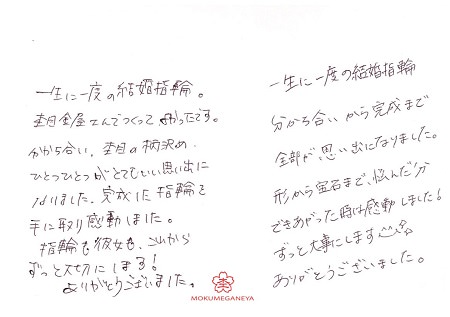 一生に一度の結婚指輪。
杢目金屋さんでつくってよかったです。
分かち合い、杢目の柄決め、
ひとつひとつがとてもいい思い出に
なりました。完成した指輪を
手に取り感動しました。
指輪も彼女も、これから
ずっと大切にします！
ありがとうございました。
一生に一度の結婚指輪
分かち合いから完成まで
全部が思い出になりました。
形から宝石まで、悩んだ分
できあがった時は感動しました！
ずっと大事にします
ありがとうございました。
MOKUMEGANEYA